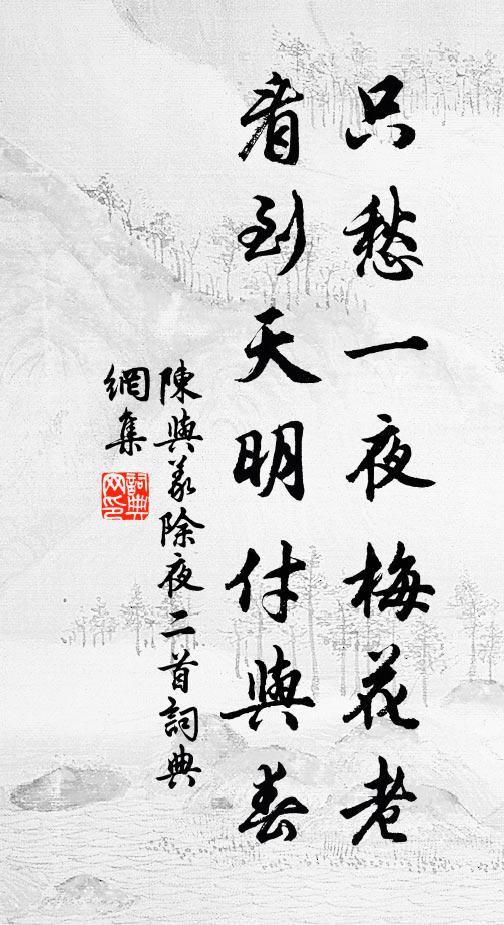 只愁一夜梅花老
看到天明付與春
陳與義除夜二首詞典
網集
詞典
网印